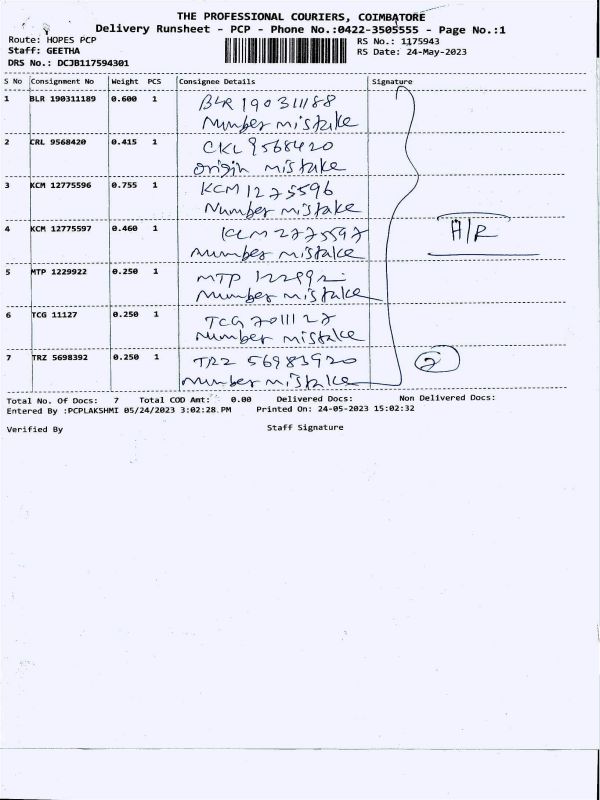 THE PROFESSIONAL COURIERS, COIMBATORE
Delivery Runsheet - PCP - Phone No.:0422-3505555 - Page No.:1
Route: HOPES PCP
RS No.: 1175943
Staff: GEETHA
RS Date: 24-May-2023
DRS No.: DCJB117594301
S No Consignment No Weight PCS Consignee Details Signature
1 BLR 190311189 0.600 1 BLR 190311188
Number mistake
2 CRL 9568420 0.415 1 CKL 9568420
Origin mistake
3 KCM 12775596 0.755 1 KCM 1275596
Number mistake
4 KCM 12775597 0.460 1 KCM 2775597
Number mistake
A/R
5 MTP 1229922 0.250 1 MTP
Number mistake
6 TCG 11127 0.250 1 TCG 7011127
Number mistake
7 TRZ 5698392 0.250 1 TRZ 56983920
Number mistake
2
Total No. Of Docs: 7 Total COD Amt: 0.00 Delivered Docs: Non Delivered Docs:
Entered By :PCPLAKSHMI 05/24/2023 3:02:28 PM Printed On: 24-05-2023 15:02:32
Verified By Staff Signature